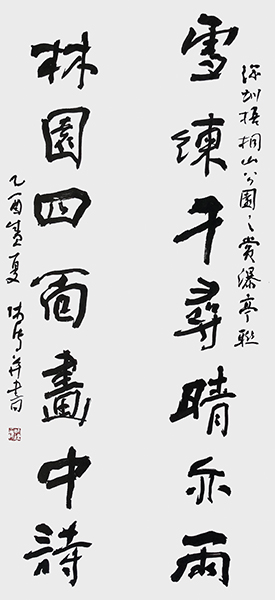 深圳梧桐山公園之賞瀑亭聯
雪練千尋晴亦雨
林園四面畫中詩
乙酉夏并書